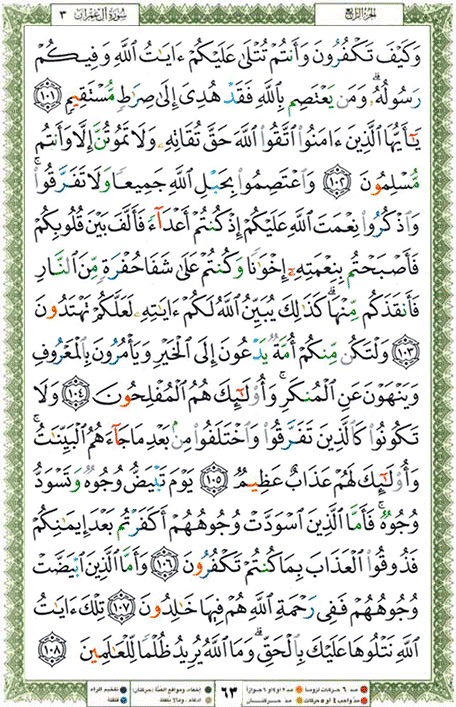 الجزء الرابع
سورة آل عمران ٣
وَكَيْفَ تَكْفُرُونَ وَأَنتُمْ تُتْلَىٰ عَلَيْكُمْ ءَايَٰتُ ٱللَّهِ وَفِيكُمْ
رَسُولُهُۥ ۗ وَمَن يَعْتَصِم بِٱللَّهِ فَقَدْ هُدِىَ إِلَىٰ صِرَٰطٍ مُّسْتَقِيمٍ ١٠١
يَٰٓأَيُّهَا ٱلَّذِينَ ءَامَنُوا۟ ٱتَّقُوا۟ ٱللَّهَ حَقَّ تُقَاتِهِۦ وَلَا تَمُوتُنَّ إِلَّا وَأَنتُم
مُّسْلِمُونَ ١٠٢ وَٱعْتَصِمُوا۟ بِحَبْلِ ٱللَّهِ جَمِيعًا وَلَا تَفَرَّقُوا۟ ۚ
وَٱذْكُرُوا۟ نِعْمَتَ ٱللَّهِ عَلَيْكُمْ إِذْ كُنتُمْ أَعْدَآءً فَأَلَّفَ بَيْنَ قُلُوبِكُمْ
فَأَصْبَحْتُم بِنِعْمَتِهِۦٓ إِخْوَٰنًا وَكُنتُمْ عَلَىٰ شَفَا حُفْرَةٍ مِّنَ ٱلنَّارِ
فَأَنقَذَكُم مِّنْهَا ۗ كَذَٰلِكَ يُبَيِّنُ ٱللَّهُ لَكُمْ ءَايَٰتِهِۦ لَعَلَّكُمْ تَهْتَدُونَ
١٠٣ وَلْتَكُن مِّنكُمْ أُمَّةٌ يَدْعُونَ إِلَى ٱلْخَيْرِ وَيَأْمُرُونَ بِٱلْمَعْرُوفِ
وَيَنْهَوْنَ عَنِ ٱلْمُنكَرِ ۚ وَأُو۟لَٰٓئِكَ هُمُ ٱلْمُفْلِحُونَ ١٠٤ وَلَا
تَكُونُوا۟ كَٱلَّذِينَ تَفَرَّقُوا۟ وَٱخْتَلَفُوا۟ مِنۢ بَعْدِ مَا جَآءَهُمُ ٱلْبَيِّنَٰتُ ۚ
وَأُو۟لَٰٓئِكَ لَهُمْ عَذَابٌ عَظِيمٌ ١٠٥ يَوْمَ تَبْيَضُّ وُجُوهٌ وَتَسْوَدُّ
وُجُوهٌ ۚ فَأَمَّا ٱلَّذِينَ ٱسْوَدَّتْ وُجُوهُهُمْ أَكَفَرْتُم بَعْدَ إِيمَٰنِكُمْ
فَذُوقُوا۟ ٱلْعَذَابَ بِمَا كُنتُمْ تَكْفُرُونَ ١٠٦ وَأَمَّا ٱلَّذِينَ ٱبْيَضَّتْ
وُجُوهُهُمْ فَفِى رَحْمَةِ ٱللَّهِ هُمْ فِيهَا خَٰلِدُونَ ١٠٧ تِلْكَ ءَايَٰتُ
ٱللَّهِ نَتْلُوهَا عَلَيْكَ بِٱلْحَقِّ ۗ وَمَا ٱللَّهُ يُرِيدُ ظُلْمًا لِّلْعَٰلَمِينَ ١٠٨
مد ٦ حركات لزوماً مد ٢ أو ٤ أو ٦ جوازاً
مد واجب ٤ أو ٥ حركات مد حركتان
٦٣
إخفاء، ومواقع الغنة (حركتان) تفخيم الراء
إدغام، وما لا يلفظ قلقلة